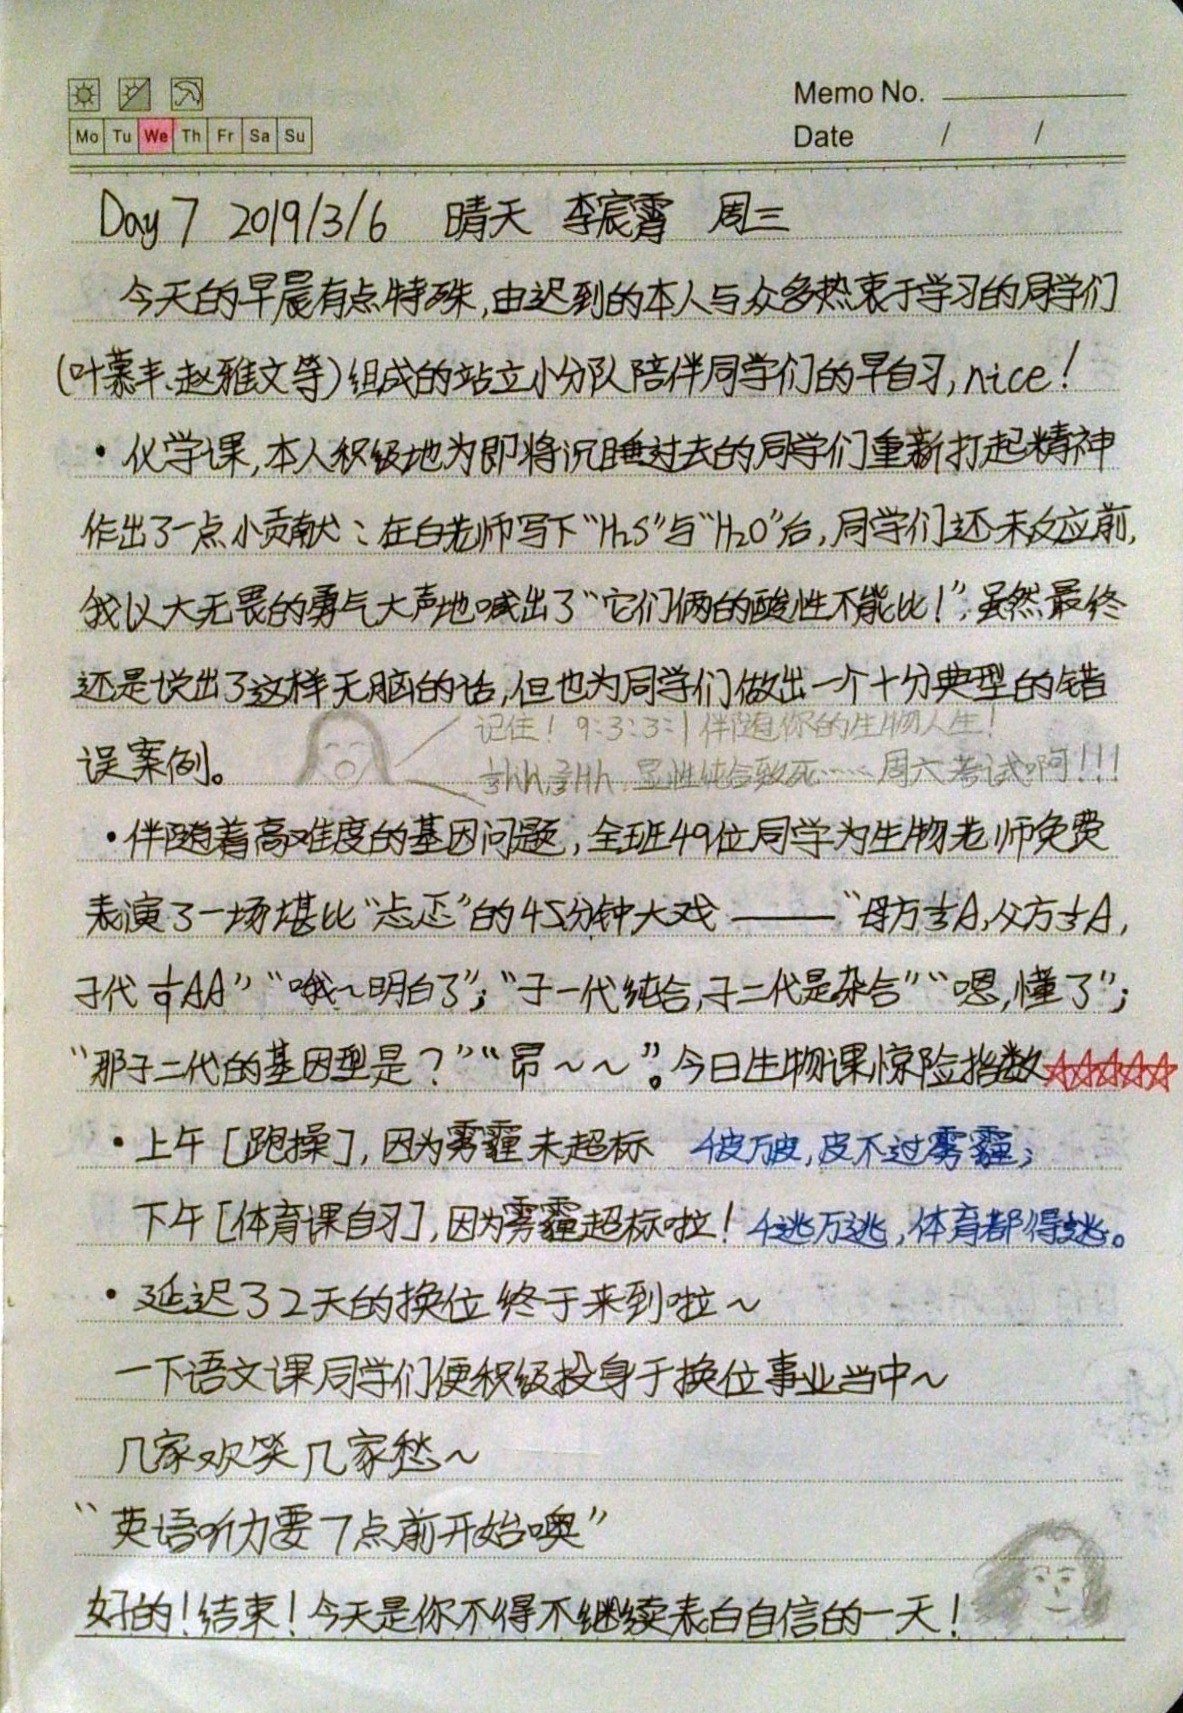 Memo No.
Mo Tu We Th Fr Sa Su
Date / /
Day 7 2019/3/6 晴天 李宸霄 周三
今天的早晨有点特殊,由迟到的本人与众多热衷于学习的同学们
(叶慕丰、赵雅文等)组成的站立小分队陪伴同学们的早自习,nice!
·化学课,本人积极地为即将沉睡过去的同学们重新打起精神
作出了一点小贡献:在白老师写下“H₂S”与“H₂O”后,同学们还未反应前,
我以大无畏的勇气大声地喊出了“它们俩的酸性不能比!”,虽然最终
还是说出了这样无脑的话,但也为同学们做出一个十分典型的错
误案例。
记住!9:3:3:1伴随你的生物人生!
⅓hh,⅔Hh.显性纯合致死……周六考试啊!!!
·伴随着高难度的基因问题,全班49位同学为生物老师免费
表演了一场堪比“忐忑”的45分钟大戏——“母方½A,父方½A,
子代¼AA”“哦~明白了”;“子一代纯合,子二代是杂合”“嗯,懂了”;
“那子二代的基因型是?”“昂~~”。今日生物课惊险指数☆☆☆☆☆
·上午[跑操],因为雾霾未超标 千皮万皮,皮不过雾霾;
下午[体育课自习],因为雾霾超标啦!千逃万逃,体育都得逃。
·延迟了2天的换位终于来到啦~
一下语文课同学们便积极投身于换位事业当中~
几家欢笑几家愁~
“英语听力要7点前开始噢”
好的!结束!今天是你不得不继续表白自信的一天!